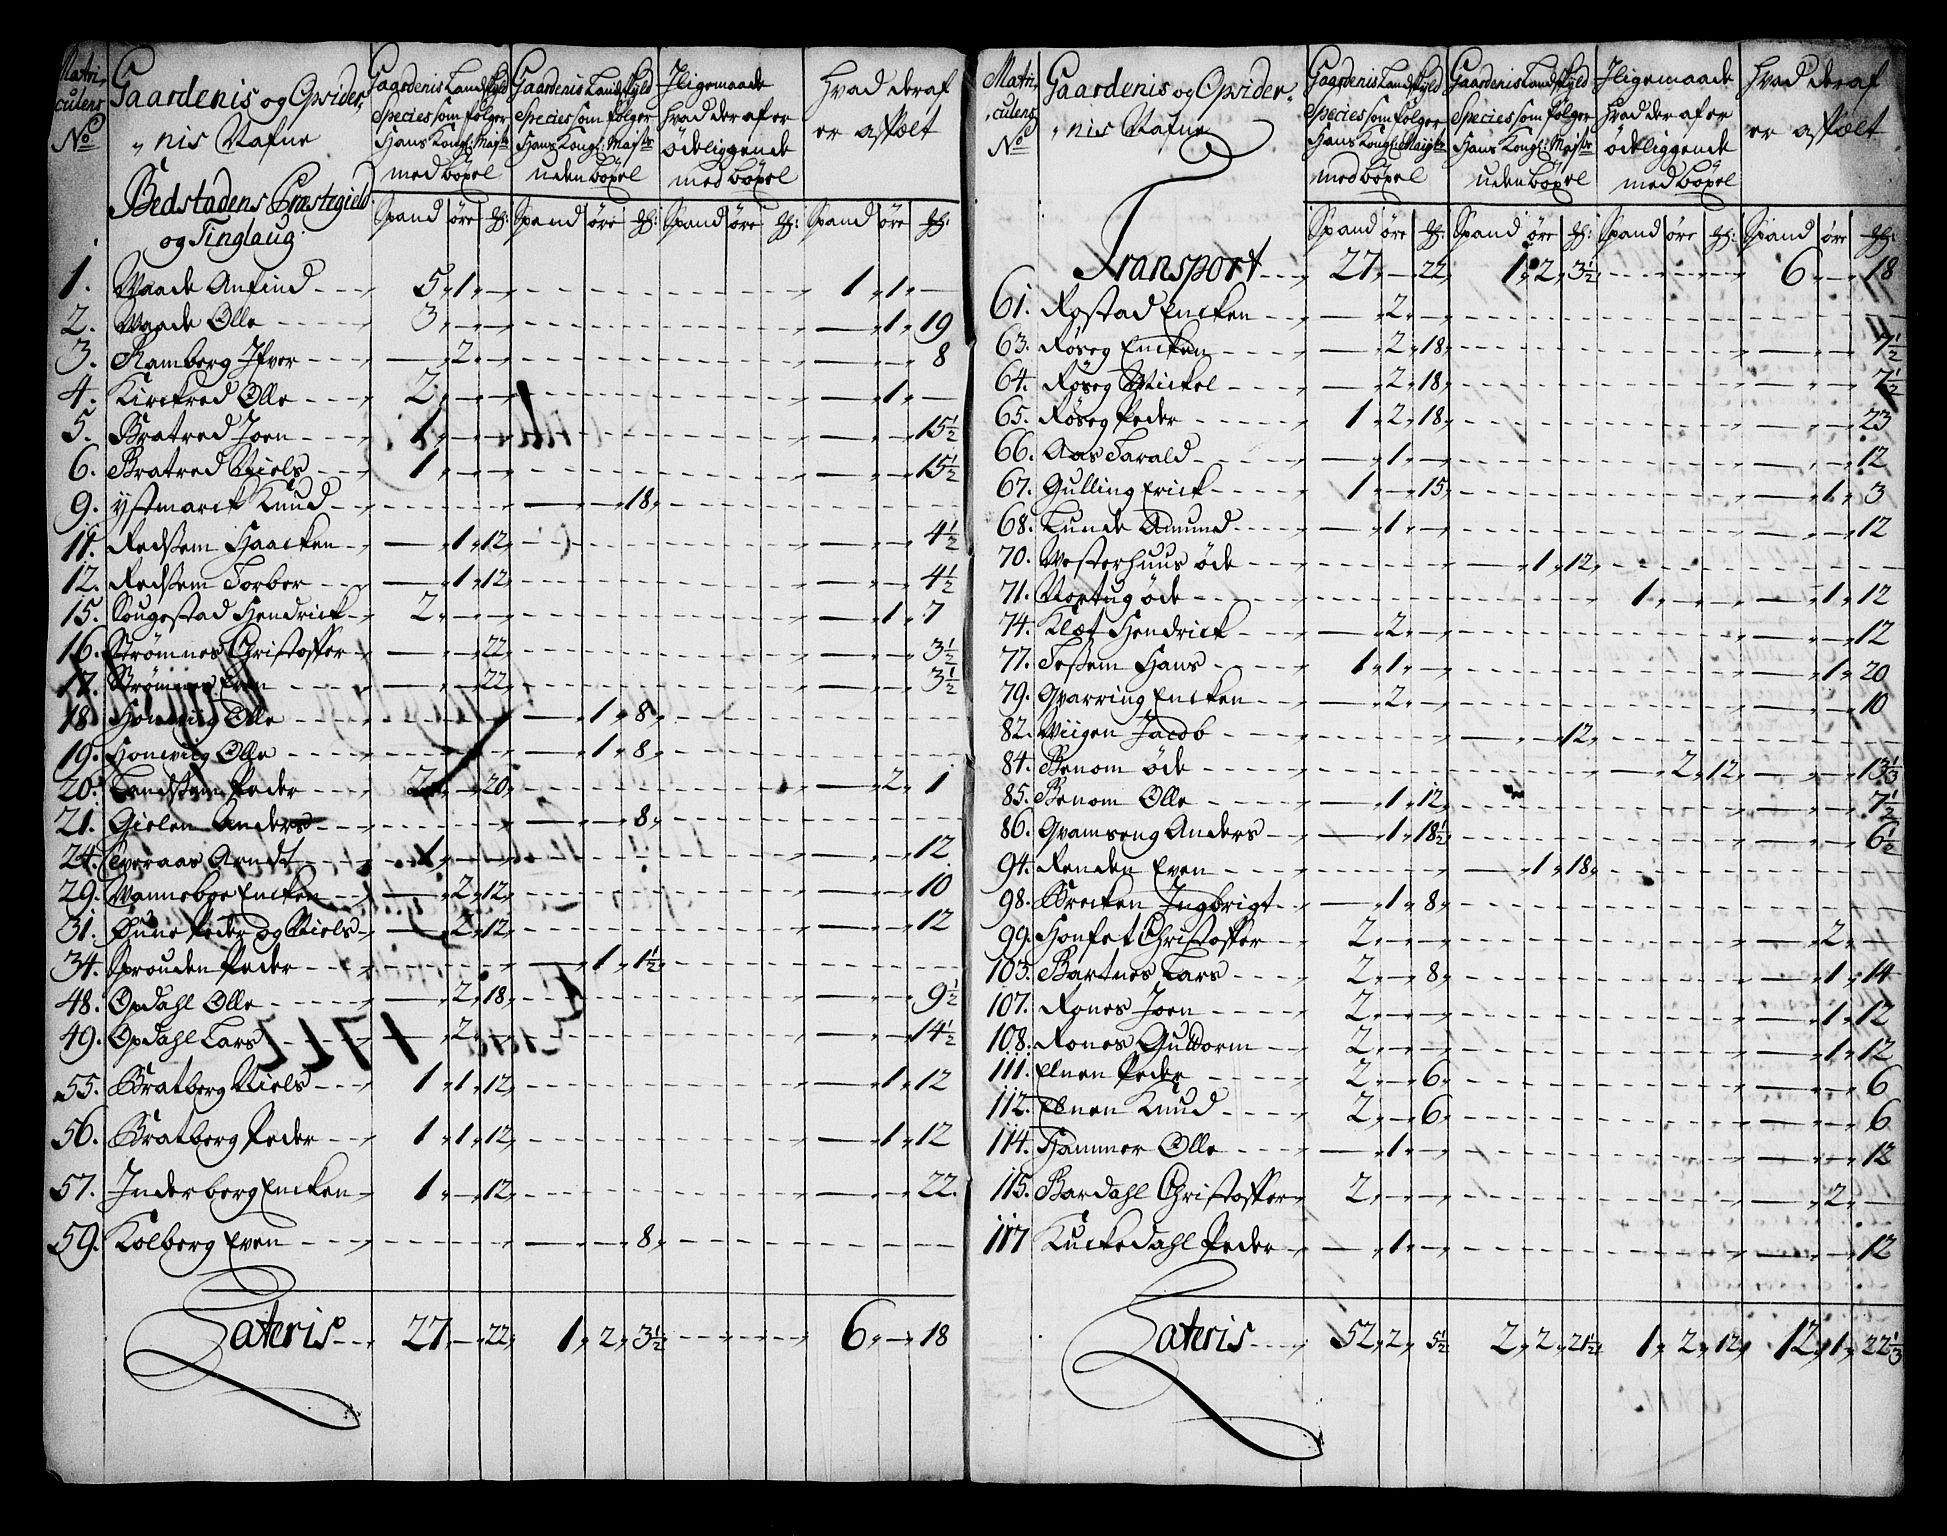 Matri-
culens
No
Gaardenis og Opsider-
nis Nafne
Gaardenis Landskyld
Species som følger
Hans Kongl: Majts
med böxel
Gaardenis Landskyld
Species som følger
Hans Kongl: Majts
uden böxel
Iligemaade
hvad der af er
ödeliggende
med böxel
Hvad deraf
er affælt
Bedstadens Præstegield
og Tinglaug
Spand öre ℔: Spand öre ℔: Spand öre ℔: Spand öre ℔:
1. Waade Anfind 5 1 — 1 1 —
2. Waade Olle 3 — — — 1 19
3. Ramberg Ifver — 2 — — — 8
4. Kirckred Olle 2 — — — 1 —
5. Bratred Joen 1 — — — — 15½
6. Bratred Niels 1 — — — — 15½
9. Ystmarck Knud — — 18
11. Redstem Haacken — 1 12 — — 4½
12. Redstem Torber — 1 12 — — 4½
15. Sougestad Hendrick 2 — — — 1 7
16. Strömnes Christoffer — — 22 — — 3½
17. Strömnes Even — — 22 — — 3½
18. Honviig Olle — 1 8
19. Honviig Olle — 1 8
20. Landstem Peder 2 — 20 — 2 1
21. Gielen Anders — — 8
24. Tveraas Arndt 1 — — — — 12
29. Wanneboe Encken — 2 12 — — 10
31. Dune Peder og Niels — 2 12 — — 12
34. Sprouden Peder — 1 1½
48. Opdahl Olle — 2 18 — — 9½
49. Opdahl Lars — 2 — — — 14½
55. Bratberg Niels 1 1 12 — 1 12
56. Bratberg Peder 1 1 12 — 1 12
57. Inderberg Encken 1 — 12 — — 22
59. Kolberg Even — — 8
Lateris 27 — 22 1 2 3½ 6 — 18
Matri-
culens
No
Gaardenis og Opsider-
nis Nafne
Gaardenis Landskyld
Species som følger
Hans Kongl: Maigts
med böxel
Gaardenis Landskyld
Species som følger
Hans Kongl: Majts
uden böxel
Iligemaade
hvad der af er
ödeliggende
med böxel
Hvad deraf
er affælt
Spand öre ℔: Spand öre ℔: Spand öre ℔: Spand öre ℔:
Transport 27 — 22 1 2 3½ 6 — 18
61. Rostad Encken — 2 —
63. Röseg Encken — 2 18 — — 7½
64. Röseg Mickel — 2 18 — — 7½
65. Röseg Peder 1 2 18 — — 23
66. Aas Tarald — 1 — — — 12
67. Gulling Erick 1 — 15 — 1 3
68. Lunde Amund — 1 — — — 12
70. Westerhuus öde — 1 12
71. Nortug öde 1 — — — 1 12
74. Klæt Hendrick — 2 — — — 12
77. Tessem Hans 1 1 — — 1 20
79. Qvarring Encken — 2 — — — 10
82. Wiigen Jacob — — 12
84. Benom öde — 2 12 — — 13⅓
85. Benom Olle — 1 12 — — 7½
86. Qvamseng Anders — 1 18½ — — 6½
94. Renden Even — 1 18
98. Brecken Ingbrigt — 1 8
99. Honset Christoffer 2 — — — 2 —
103. Bartnes Lars 2 — 8 — 1 14
107. Rones Joen 2 — — — 1 12
108. Rones Guldorm 2 — — — 1 12
111. Elnen Peder 2 — 6 — — 6
112. Elnen Knud 2 — 6 — — 6
114. Hammer Olle — 1 — — — 12
115. Bardahl Christoffer 2 — — — 2 —
117 Kuckedahl Peder — 1 — — — 12
Lateris 52 2 5½ 2 2 21½ 1 2 12 12 1 22⅓